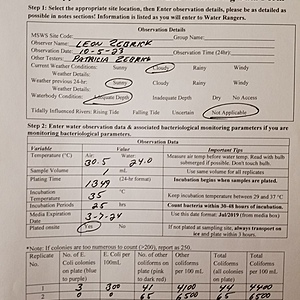 Step 1: Select the appropriate site location, then Enter observation details, please be as detailed as
possible in notes sections! Information is listed as you will enter to Water Rangers.
Observation Details
MSWS Site Code: Group Name:
Observer Name: LEON ZEBRICK
Observation Date: 10-5-23 Observation Time (24hr):
Other Testers: PATRICIA ZEBRICK
Current Weather Conditions: Sunny Cloudy Rainy Windy
Weather Details:
Weather previous 24-hr: Sunny Cloudy Rainy Windy
Weather Details:
Waterbody Condition: Adequate Depth Inadequate Depth Dry No Access
Tidally Influenced Rivers: Rising Tide Falling Tide Uncertain Not Applicable
Step 2: Enter water observation data & associated bacteriological monitoring parameters if you are
monitoring bacteriological parameters.
Observation Data
Variable Value Important Tips
Temperature (°C) Air: 30.5 Water: 24.0 Measure air temp before water temp. Read with bulb
submerged if possible. Don't touch bulb.
Sample Volume 1 mL Use same volume for all replicates
Plating Time 1349 (24-hr format) Incubation begins when samples are plated.
Incubation
Temperature 35 °C Keep incubation temperature between 29 and 37 °C
Incubation Period 25 hrs Count bacteria within 30-48 hours of incubation.
Media Expiration
Date 3-7-24 Use this date format: Jul/2019 (from media box)
Plated onsite Yes No If not plated at sampling site, always transport on
ice and plate within 3 hours.
*Note: If colonies are too numerous to count (>200), report as 250.
Replicate
No. No. of E.
Coli colonies
on plate (blue
to purple) E. Coli per
100mL No. of other
coliform
colonies on
plate (pink
to dark red) Other
coliforms
per 100 mL Total
Coliforms
(all colonies
on plate) Total
Coliforms
per 100 mL
1 3 300 41 4100 44 4400
2 0 0 65 6500 65 6500